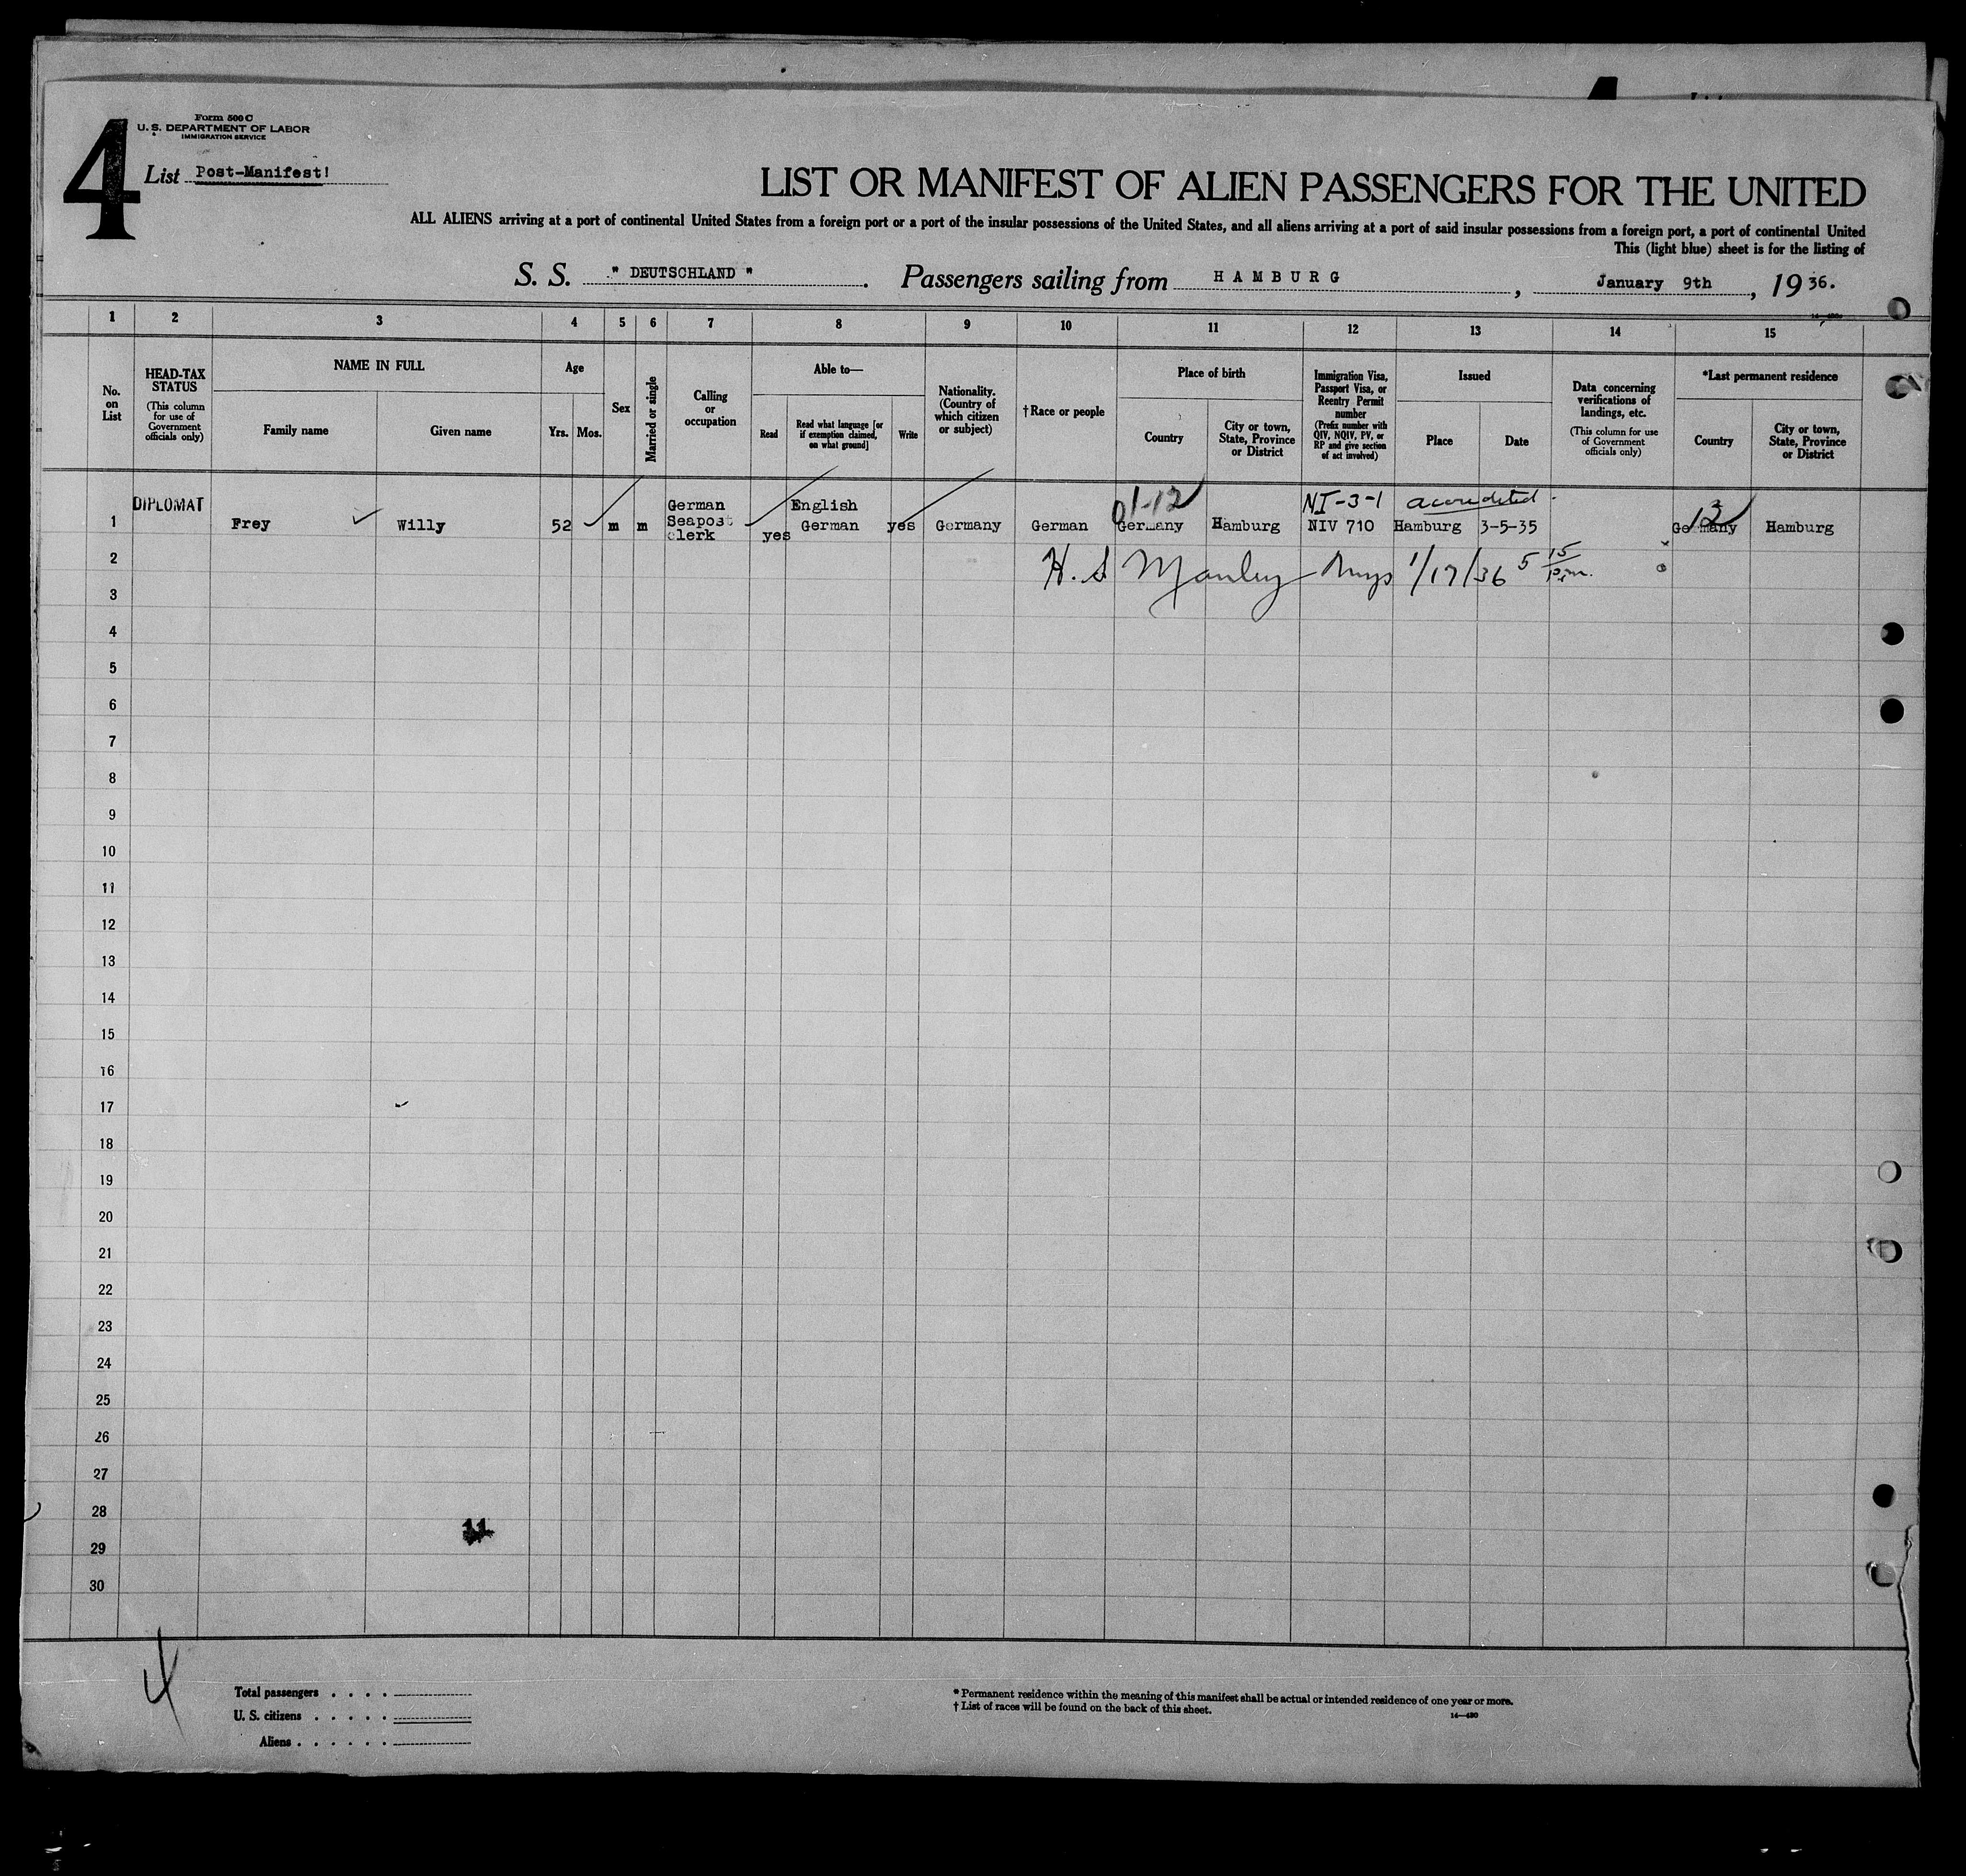 4
Form 500 C
U. S. DEPARTMENT OF LABOR
IMMIGRATION SERVICE
List Post-Manifest!
LIST OR MANIFEST OF ALIEN PASSENGERS FOR THE UNITED
ALL ALIENS arriving at a port of continental United States from a foreign port or a port of the insular possessions of the United States, and all aliens arriving at a port of said insular possessions from a foreign port, a port of continental United
This (light blue) sheet is for the listing of
S. S. " DEUTSCHLAND " . Passengers sailing from HAMBURG , January 9th , 19 36.
1 2 3 4 5 6 7 8 9 10 11 12 13 14 15
No. on List
HEAD-TAX STATUS
(This column for use of Government officials only)
NAME IN FULL
Family name
Given name
Age
Yrs. Mos.
Sex
Married or single
Calling or occupation
Able to—
Read
Read what language [or if exemption claimed, on what ground]
Write
Nationality. (Country of which citizen or subject)
†Race or people
Place of birth
Country
City or town, State, Province or District
Immigration Visa, Passport Visa, or Reentry Permit number
(Prefix number with QIV, NQIV, PV, or RP and give section of act involved)
Issued
Place
Date
Data concerning verifications of landings, etc.
(This column for use of Government officials only)
*Last permanent residence
Country
City or town, State, Province or District
DIPLOMAT German English 01-12 NI-3-1 accredited
1 Frey Willy 52 m m Seapost clerk yes German yes Germany German Germany Hamburg NIV 710 Hamburg 3-5-35 Germany 12 Hamburg
2 H. S Manley 1/17/36 5 15 p.m.
3
4
5
6
7
8
9
10
11
12
13
14
15
16
17
18
19
20
21
22
23
24
25
26
27
28
29
30
11
4
Total passengers . . . .
U. S. citizens . . . . .
Aliens . . . . . .
* Permanent residence within the meaning of this manifest shall be actual or intended residence of one year or more.
† List of races will be found on the back of this sheet.
14—430